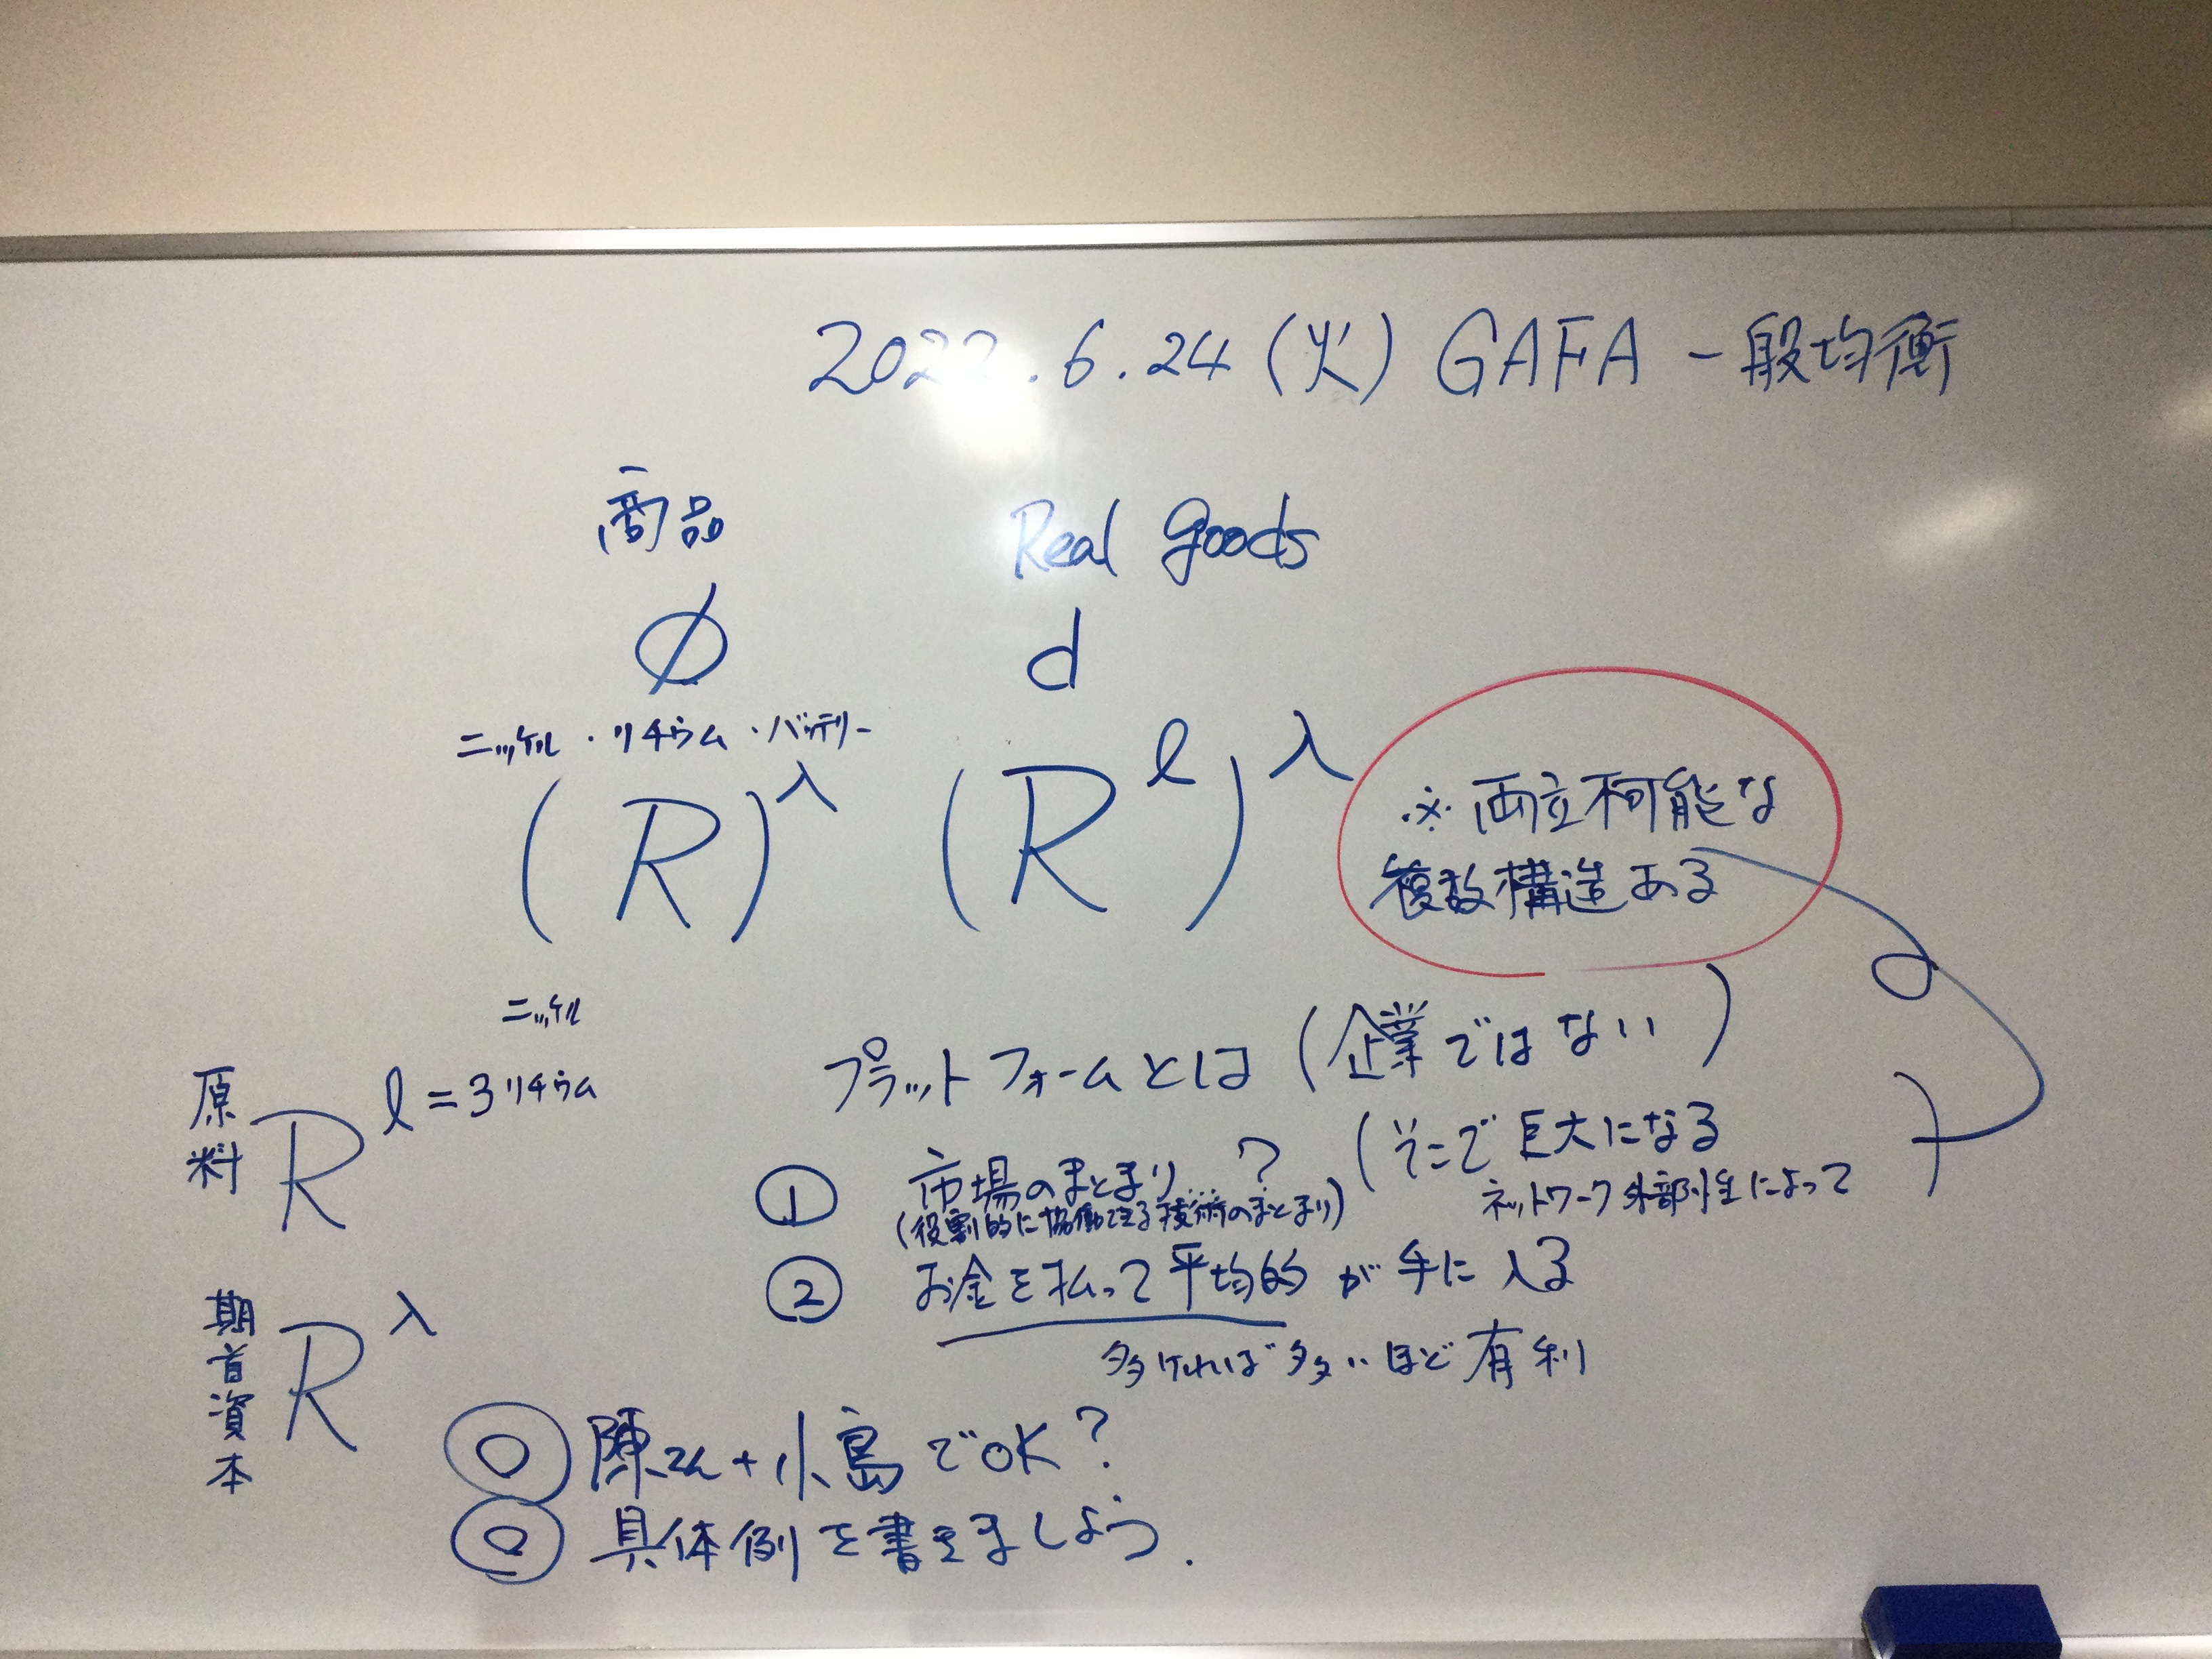 2022.6.24(火) GAFA 一般均衡
商品 Real goods
∅ d
ニッケル・リチウム・バッテリー
(R)^λ (R^ℓ)^λ
※両立不可能な
複数構造ある
ニッケル
原料 R^ℓ=3 リチウム
プラットフォームとは (企業ではない)
(そこで巨大になる
ネットワーク外部性によって)
① 市場のまとまり…?
(役割的に協働できる技術のまとまり)
② お金を払って平均的が手に入る
多ければ多いほど有利
期首資本 R^λ
◎ 陳さん+小島でOK?
◎ 具体例を書きましょう.